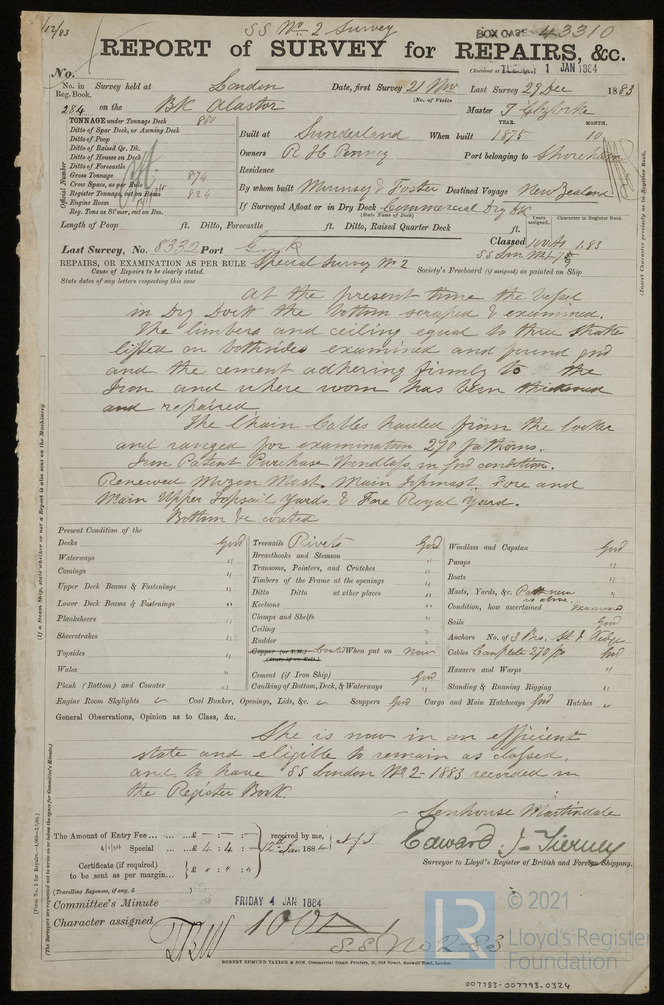 SS No 2 Survey
BOX CASE 43310
12/83
REPORT of SURVEY for REPAIRS, &c.
No.
1 JAN 1884
No. in Reg. Book. Survey held at London Date, first Survey 21 Nov Last Survey 29 Dec 1883
(No. of Visits)
284 on the Bk Alastor Master
TONNAGE under Tonnage Deck 800
Ditto of Spar Deck, or Awning Deck
Ditto of Poop
Ditto of Raised Qr. Dk.
Ditto of Houses on Deck
Ditto of Forecastle
Gross Tonnage 874
Crew Space, as per Rule
Register Tonnage, cut on Beam 824
Engine Room
Reg. Tons as St'mer, cut on Bm.
Official Number
YEAR. MONTH.
Built at Sunderland When built 1875 10
Owners R H Penney Port belonging to Shoreham
Residence
By whom built Mounsey & Foster Destined Voyage New Zealand
If Surveyed Afloat or in Dry Dock Commercial Dry Dk
(State Name of Dock)
Length of Poop ft. Ditto, Forecastle ft. Ditto, Raised Quarter Deck ft.
Years assigned. Character in Register Book.
Last Survey, No. 8330 Port Cork Classed 100A1 1.83
REPAIRS, OR EXAMINATION AS PER RULE Special Survey No 2
Cause of Repairs to be clearly stated.
Society's Freeboard (if assigned) as painted on Ship
State dates of any letters respecting this case
At the present time the Vessel
in Dry Dock the bottom scraped & examined.
The limbers and ceiling equal to three strakes
lifted on both sides examined and found good
and the cement adhering firmly to the
Iron and where worn has been
and repaired
The Chain Cables hauled from the locker
and ranged for examination 270 fathoms.
Iron Patent Purchase Windlass in good condition.
Renewed Mizen Mast. Main Topmast. Fore and
Main Upper Topsail Yards. & Fore Royal Yard.
Bottom &c coated
Present Condition of the
Decks Good
Waterways "
Comings "
Upper Deck Beams & Fastenings "
Lower Deck Beams & Fastenings "
Planksheers "
Sheerstrakes "
Topsides "
Wales "
Plank (Bottom) and Counter "
Treenails Rivets Good
Breasthooks and Stemson "
Transoms, Pointers, and Crutches "
Timbers of the Frame at the openings "
Ditto Ditto at other places "
Keelsons "
Clamps and Shelfs "
Ceiling "
Rudder "
Copper (or Y.M.) Coated When put on Now
(State if on Felt.)
Cement (if Iron Ship) Good
Caulking of Bottom, Deck, & Waterways "
Windlass and Capstan Good
Pumps "
Boats "
Masts, Yards, &c. Part new as above.
Condition, how ascertained Examined
Sails Good
Anchors No. of 3 Brs. St & Kedge
Cables Complete 270 fs Good
Hawsers and Warps "
Standing & Running Rigging "
Engine Room Skylights Coal Bunker, Openings, Lids, &c. Scuppers Good Cargo and Main Hatchways Good Hatches
General Observations, Opinion as to Class, &c.
She is now in an efficient
state and eligible to remain as classed,
and to have SS London No 2 - 1883 recorded in
the Register Book.
Senhouse Martindale
Edward J Tierney
Surveyor to Lloyd's Register of British and Foreign Shipping.
The Amount of Entry Fee ... ... ... £ - : - :
Special ... ... £ 4 : 4 : -
received by me,
Jan 1884
Certificate (if required) to be sent as per margin...
(Travelling Expenses, if any, £ )
Committee's Minute FRIDAY 4 JAN 1884
Character assigned 100 A 1
S.S. No 2-83
ROBERT EDMUND TAYLOR & SON, Commercial Steam Printers, 19, Old Street, Goswell Road, London.
(If a Steam Ship, state whether or not a Report is also sent on the Machinery
(The Surveyors are requested not to write on or below the space for Committee's Minute.)
© 2021
LR
Lloyd's Register
Foundation
007783-007793-0324